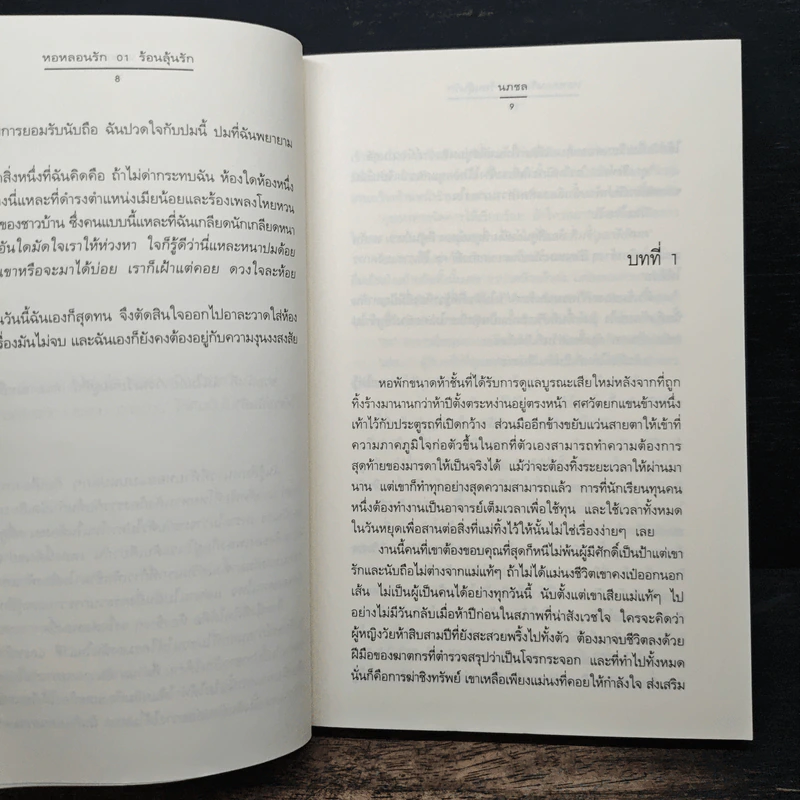 หอหลอนรัก 01 ร้อนลุ้นรัก
8
การยอมรับนับถือ ฉันปวดใจกับปมนี้ ปมที่ฉันพยายาม
สิ่งหนึ่งที่ฉันคิดคือ ถ้าไม่ด่ากระทบฉัน ห้องใดห้องหนึ่ง
งนี่แหละที่ดำรงตำแหน่งเมียน้อยและร้องเพลงโหยหวน
ของชาวบ้าน ซึ่งคนแบบนี้แหละที่ฉันเกลียดนักเกลียดหนา
อันใดมัดใจเราให้ห่วงหา ใจก็รู้ดีว่านี่แหละหนาปมด้อย
นเขาหรือจะมาได้บ่อย เราก็เฝ้าแต่คอย ดวงใจละห้อย
นวันนี้ฉันเองก็สุดทน จึงตัดสินใจออกไปอาละวาดใส่ห้อง
รื่องมันไม่จบ และฉันเองก็ยังคงต้องอยู่กับความงุนงงสงสัย
นภชล
๙
บทที่ 1
หอพักขนาดห้าชั้นที่ได้รับการดูแลบูรณะเสียใหม่หลังจากที่ถูก
ทิ้งร้างมานานกว่าห้าปีตั้งตระหง่านอยู่ตรงหน้า ศศวัตยกแขนข้างหนึ่ง
เท้าไว้กับประตูรถที่เปิดกว้าง ส่วนมืออีกข้างขยับแว่นสายตาให้เข้าที่
ความภาคภูมิใจก่อตัวขึ้นในอกที่ตัวเองสามารถทำความต้องการ
สุดท้ายของมารดาให้เป็นจริงได้ แม้ว่าจะต้องทิ้งระยะเวลาให้ผ่านมา
นาน แต่เขาก็ทำทุกอย่างสุดความสามารถแล้ว การที่นักเรียนทุนคน
หนึ่งต้องทำงานเป็นอาจารย์เต็มเวลาเพื่อใช้ทุน และใช้เวลาทั้งหมด
ในวันหยุดเพื่อสานต่อสิ่งที่แม่ทิ้งไว้ให้นั้นไม่ใช่เรื่องง่ายๆ เลย
งานนี้คนที่เขาต้องขอบคุณที่สุดก็หนีไม่พ้นผู้มีศักดิ์เป็นป้าแต่เขา
รักและนับถือไม่ต่างจากแม่แท้ๆ ถ้าไม่ได้แม่นงชีวิตเขาคงเป๋ออกนอก
เส้น ไม่เป็นผู้เป็นคนได้อย่างทุกวันนี้ นับตั้งแต่เขาเสียแม่แท้ๆ ไป
อย่างไม่มีวันกลับเมื่อห้าปีก่อนในสภาพที่น่าสังเวชใจ ใครจะคิดว่า
ผู้หญิงวัยห้าสิบสามปีที่ยังสะสวยพริ้งไปทั้งตัว ต้องมาจบชีวิตลงด้วย
ฝีมือของฆาตกรที่ตำรวจสรุปว่าเป็นโจรกระจอก และที่ทำไปทั้งหมด
นั่นก็คือการฆ่าชิงทรัพย์ เขาเหลือเพียงแม่นงที่คอยให้กำลังใจ ส่งเสริม